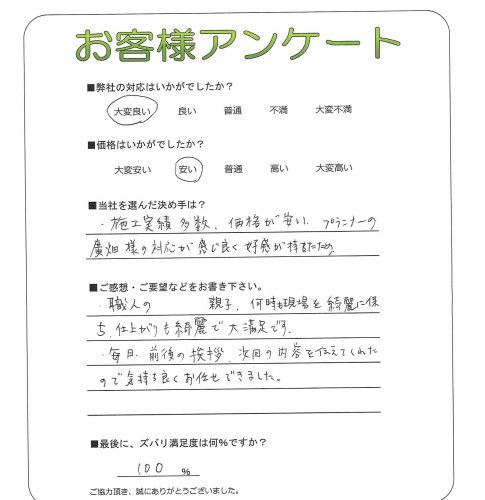 お客様アンケート
■弊社の対応はいかがでしたか？
大変良い 良い 普通 不満 大変不満
■価格はいかがでしたか？
大変安い 安い 普通 高い 大変高い
■当社を選んだ決め手は？
・施工実績多数、価格が安い、プランナーの
廣畑様の対応が感じ良く好感が持てたため
■ご感想・ご要望などをお書き下さい。
・職人の 親子、何時も現場を綺麗に保
ち、仕上がりも綺麗で大満足です。
・毎日、前後の挨拶、次回の内容を伝えてくれた
ので気持ち良くお任せできました。
■最後に、ズバリ満足度は何％ですか？
100 ％
ご協力頂き、誠にありがとうございました。